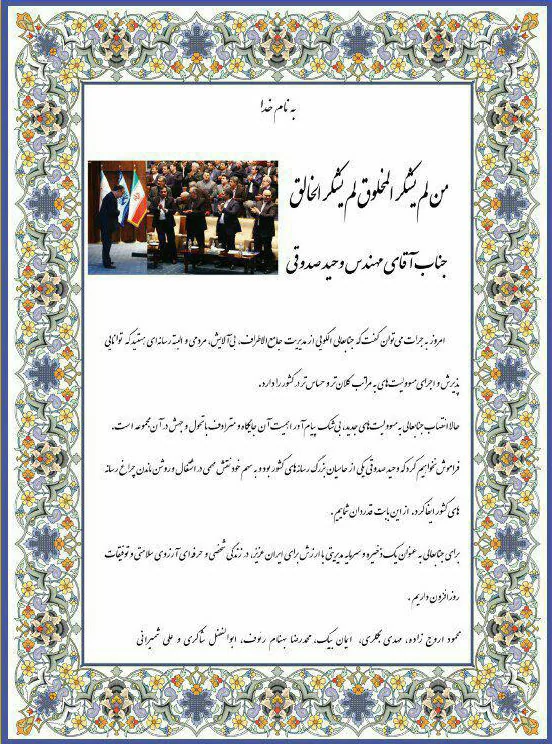 به نام خدا
من لم یشکر المخلوق لم یشکر الخالق
جناب آقای مهندس وحید صدوقی
امروز به جرات می‌توان گفت که جنابعالی الگویی از مدیریت جامع‌الاطراف، بی‌آلایش، مردمی و البته رسانه‌ای هستید که توانایی
پذیرش و اجرای مسوولیت‌های به مراتب کلان‌تر و حساس‌تر در کشور را دارد.
حالا انتصاب جنابعالی به مسوولیت‌های جدید، بی‌شک پیام‌آور اهمیت آن جایگاه و مترادف با تحول و جهش در آن مجموعه است.
فراموش نخواهیم کرد که وحید صدوقی یکی از حامیان بزرگ رسانه‌های کشور بود و به سهم خود نقش مهمی در اشتغال و روشن ماندن چراغ رسانه
های کشور ایفا کرد. از این بابت قدردان شماییم.
برای جنابعالی به عنوان یک ذخیره و سرمایه مدیریتی با ارزش برای ایران عزیز، در زندگی شخصی و حرفه‌ای آرزوی سلامتی و توفیقات
روز افزون داریم.
محمود اروج زاده، مهدی بجگری، ایمان بیک، محمدرضا بهنام رئوف، ابوالفضل شاکری و علی شمیرانی